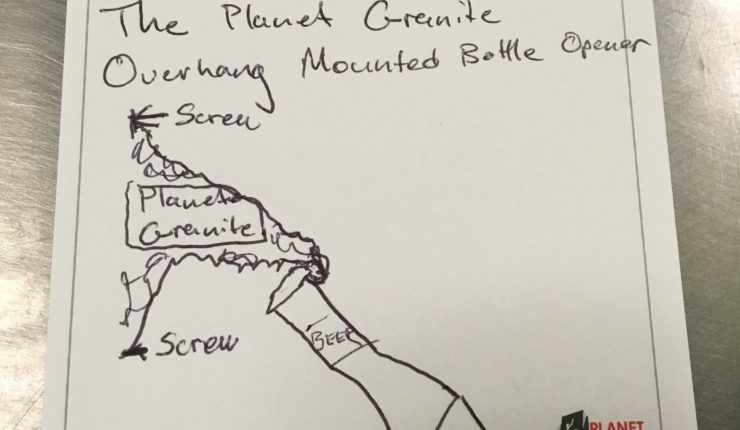 The Planet Granite
Overhang Mounted Bottle Opener
Screw
Planet
Granite
BEER
Screw
PLANET